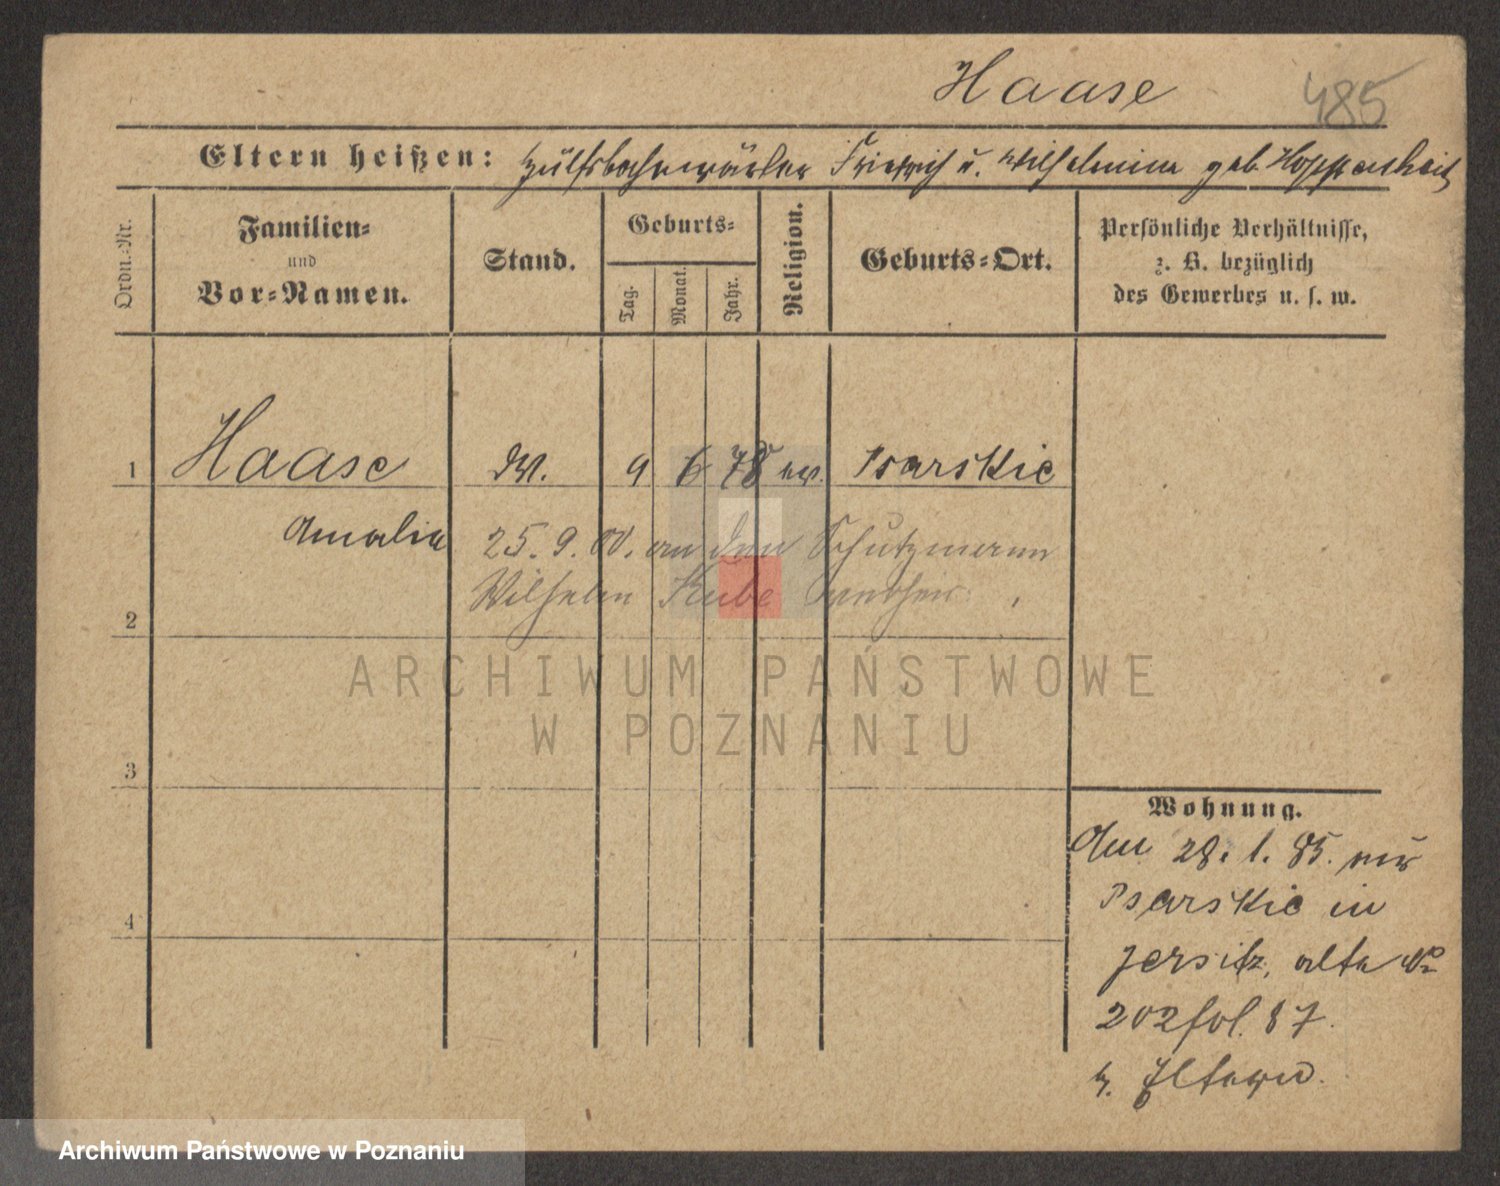 Haase 485
Eltern heißen: Hülfsbahnwärter Friedrich u. Wilhelmine geb. Hoppenheit
Ordn.-Nr.
Familien-
und
Vor-Namen.
Stand.
Geburts-
Tag.
Monat.
Jahr.
Religion.
Geburts-Ort.
Persönliche Verhältnisse,
z. B. bezüglich
des Gewerbes u. s. w.
1 Haase 9 6 78 ev. Psarskie
Amalie 25. 9. 00. an den Schutzmann
Wilhelm Kube verheir.
2
ARCHIWUM PAŃSTWOWE
W POZNANIU
3
Wohnung.
Am 28. 1. 85. aus
Psarskie in
4
Jersitz, alte No
202 fol. 87.
z. Eltern.
Archiwum Państwowe w Poznaniu